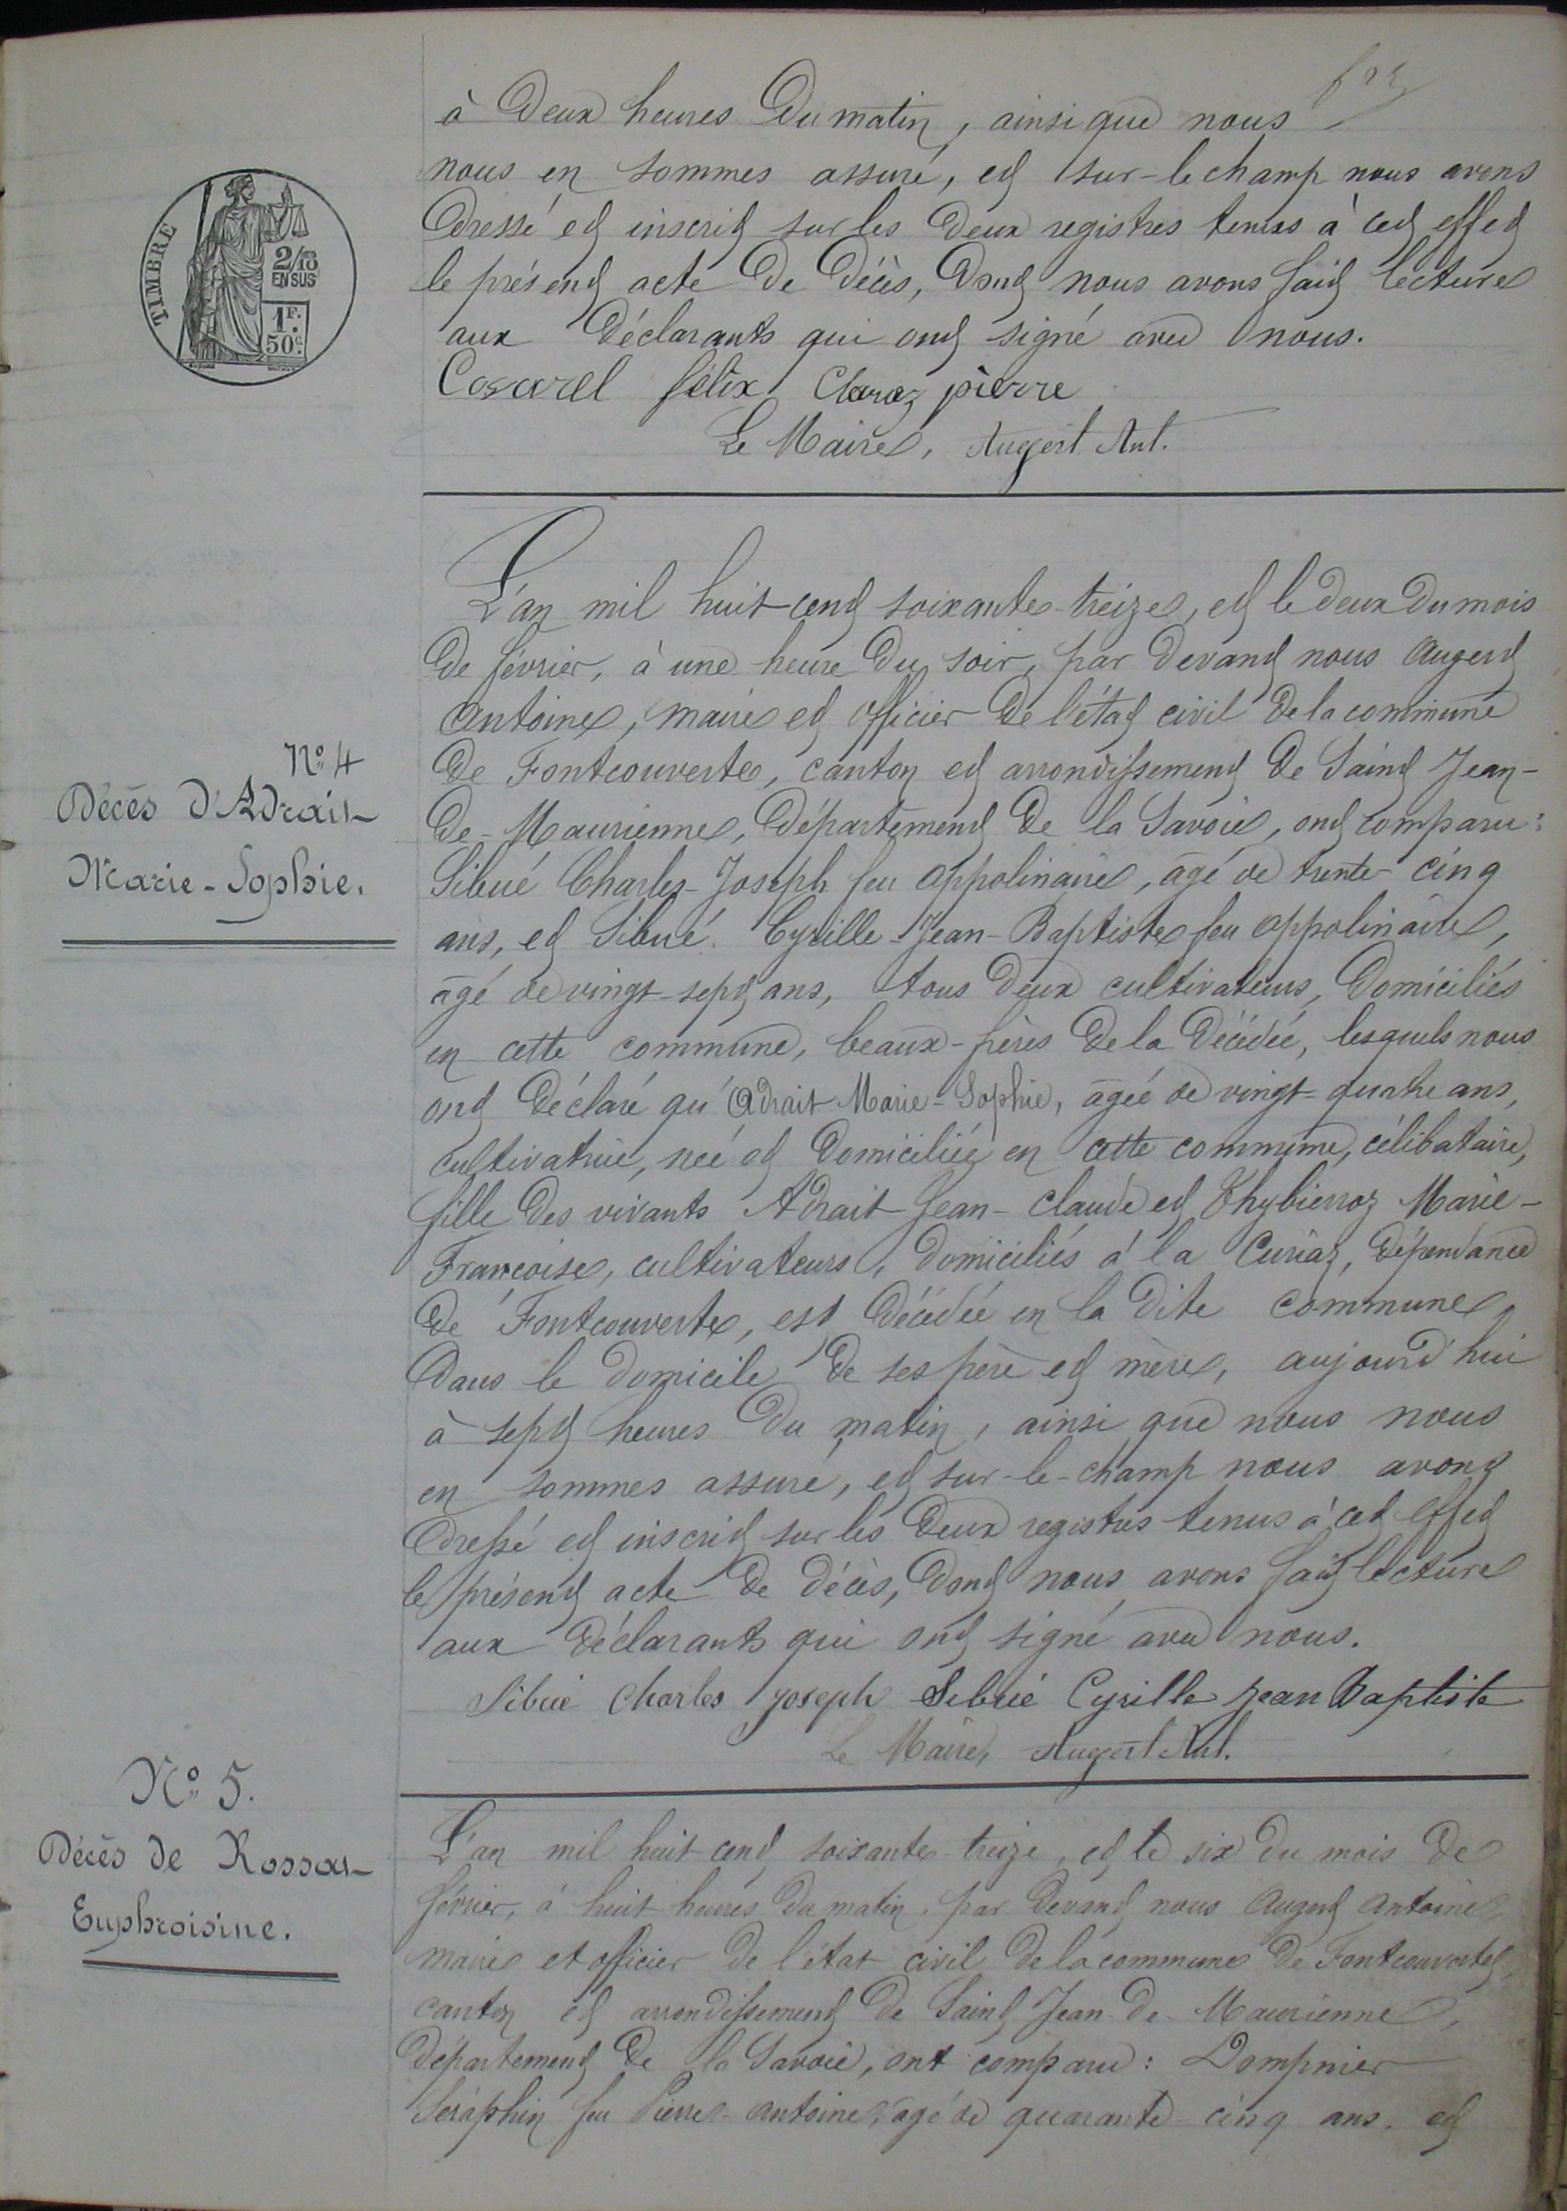 à deux heures du matin, ainsi que nous
nous en sommes assuré, et sur-le champ nous avons
dressé et inscrit sur les deux registres tenus à cet effet
le présent acte de décès, dont nous avons fait lecture
aux déclarants qui ont signé avec nous.
félix Claraz pierre
Le Maire, Augert Ant.
TIMBRE
2/10
EN SUS
1F.
50c
L'an mil huit cent soixante-treize, et le deux du mois
de février, à une heure du soir, par devant nous Augert
Antoine, maire et officier de l'état civil de la commune
de Fontcouverte, canton et arrondissement de Saint Jean-
de-Maurienne, département de la Savoie, ont comparu:
Sibué Charles-Joseph feu Appolinaire, âgé de trente-cinq
ans, et Sibué Cyrille-Jean-Baptiste feu Appolinaire,
âgé de vingt-sept ans, tous deux cultivateurs, domiciliés
en cette commune, beaux-frères de la décédée, lesquels nous
ont déclaré qu'Adrait Marie-Sophie, âgée de vingt-quatre ans,
cultivatrice, née et domiciliée en cette commune, célibataire,
fille des vivants Adrait Jean-Claude et Thybierroz Marie-
Françoise, cultivateurs, domiciliés à la Curiaz, dépendance
de Fontcouverte, est décédée en la dite commune,
dans le domicile de ses père et mère, aujourd'hui
à sept heures du matin, ainsi que nous nous
en sommes assuré, et sur-le-champ nous avons
dressé et inscrit sur les deux registres tenus à cet effet
le présent acte de décès, dont nous avons fait lecture
aux déclarants qui ont signé avec nous.
Sibué Charles joseph Sibué Cyrille Jean Baptiste
Le Maire, Augert Ant.
N° 4
Décès d'Adrait
Marie-Sophie.
N° 5.
Décès de Rossat
Euphroisine.
L'an mil huit cent soixante-treize, et le six du mois de
février, à huit heures du matin, par devant nous Augert Antoine,
maire et officier de l'état civil de la commune de Fontcouverte,
canton et arrondissement de Saint Jean-de-Maurienne,
département de la Savoie, ont comparu: Dompnier
Séraphin feu Pierre-Antoine, âgé de quarante-cinq ans, et